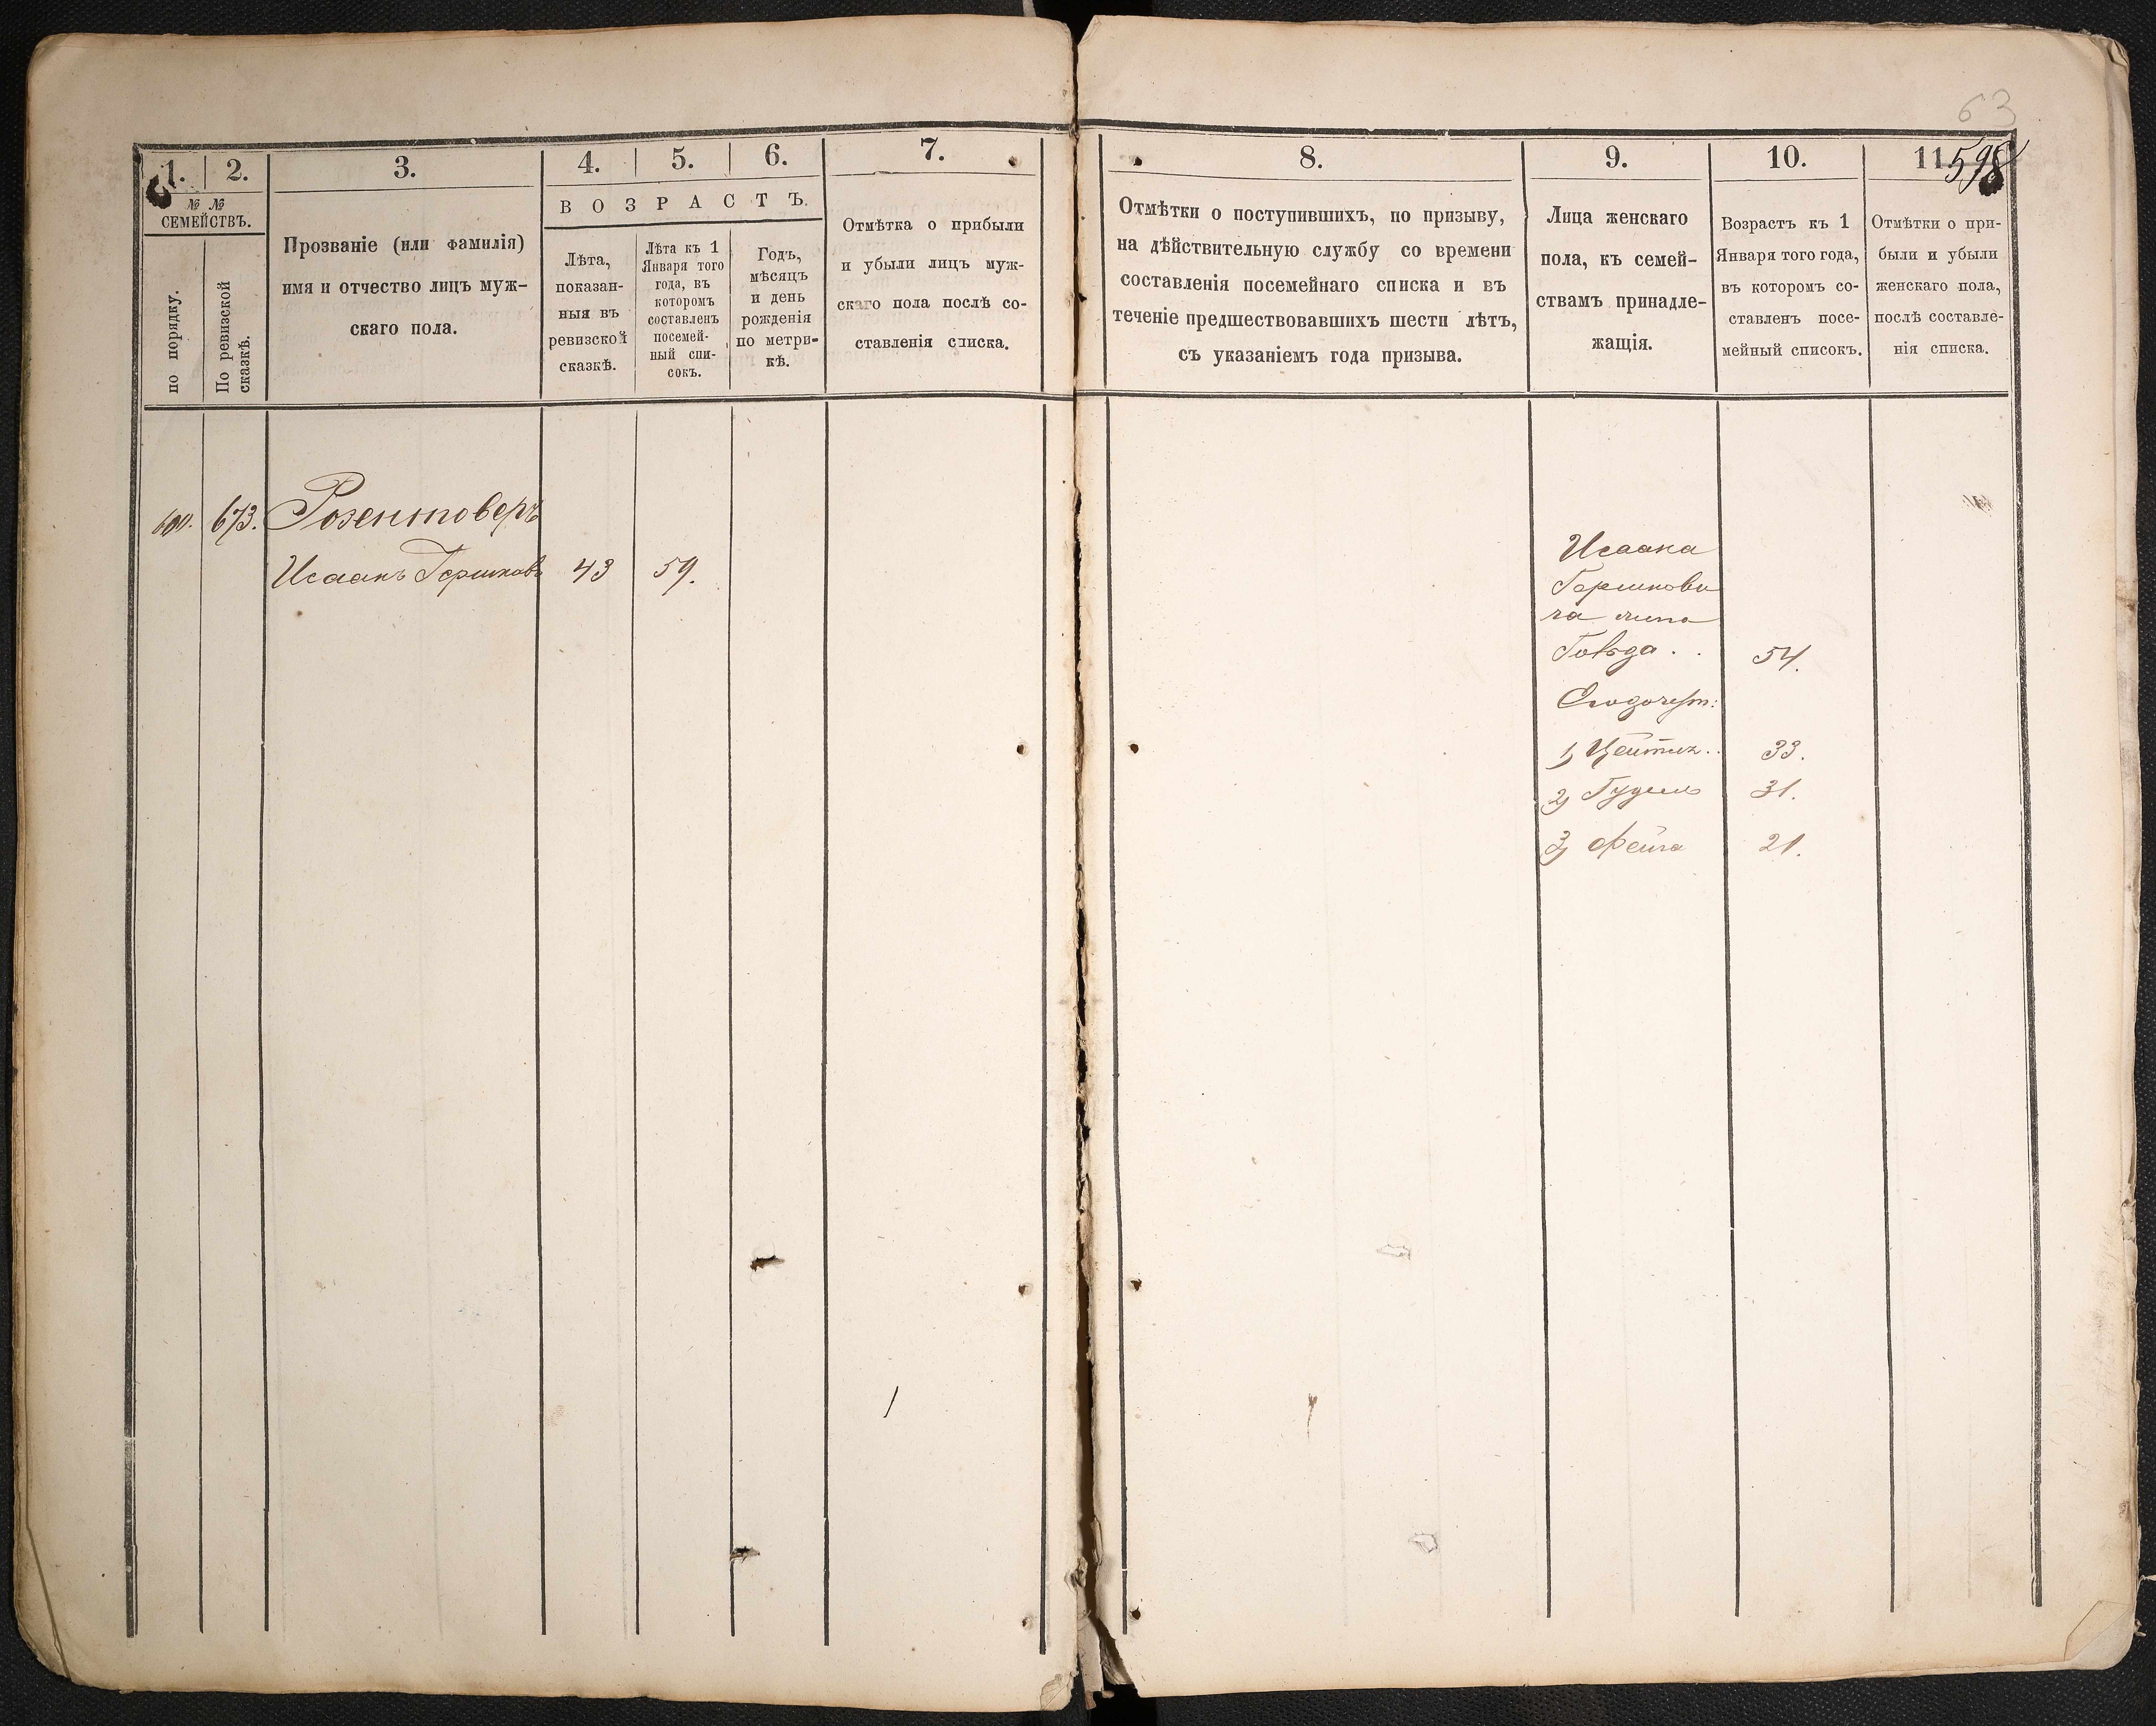 63
598
1. 2. 3. 4. 5. 6. 7.
№ №
СЕМЕЙСТВЪ.
по порядку.
По ревизской
сказкѣ.
Прозваніе (или фамилія)
имя и отчество лицъ муж-
скаго пола.
ВОЗРАСТЪ.
Лѣта,
показан-
ныя въ
ревизской
сказкѣ.
Лѣта къ 1
Января того
года, въ
котором​ъ
составленъ
посемей-
ный спи-
сокъ.
Годъ,
мѣсяцъ
и день
рожденія
по метри-
кѣ.
Отмѣтка о прибыли
и убыли лицъ муж-
скаго пола послѣ со-
ставленія списка.
673. Розентоверъ
Исаакъ Гершковъ 43 59.
8. 9. 10. 11.
Отмѣтки о поступившихъ, по призыву,
на дѣйствительную службу со времени
составленія посемейнаго списка и въ
теченіе предшествовавшихъ шести лѣтъ,
съ указаніемъ года призыва.
Лица женскаго
пола, къ семей-
ствамъ принадле-
жащія.
Возрастъ къ 1
Января того года,
въ которомъ со-
ставленъ посе-
мейный списокъ.
Отмѣтки о при-
были и убыли
женскаго пола,
послѣ составле-
нія списка.
Исаака
Гершкови
ча жена
54.
1) 33.
2) Гудель 31.
3) Фейга 21.